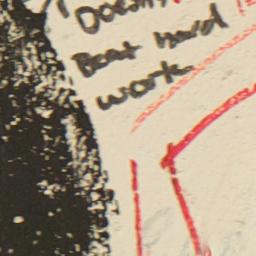 Doesn't
Beat hard
work